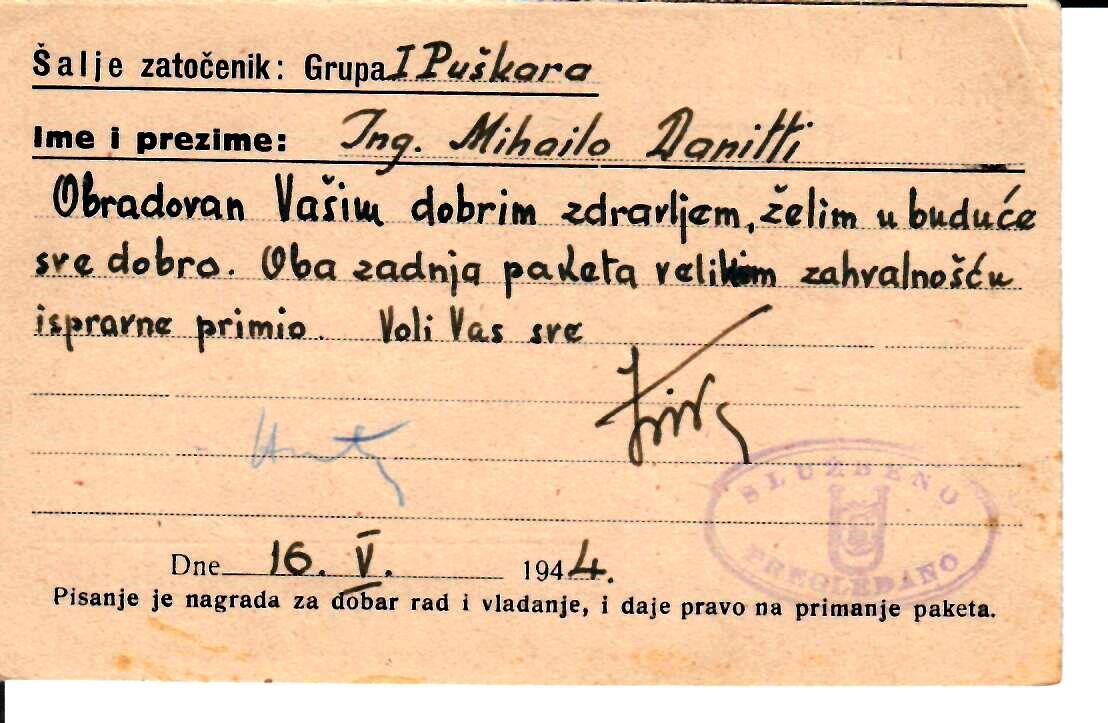 Šalje zatočenik: Grupa I Puškara
Ime i prezime: Ing. Mihailo Danitti
Obradovan Vašim dobrim zdravljem, želim u buduće
sve dobro. Oba zadnja paketa velikom zahvalnošću
ispravne primio. Voli Vas sve
SLUŽBENO
PREGLEDANO
Dne 16. V. 1944.
Pisanje je nagrada za dobar rad i vladanje, i daje pravo na primanje paketa.